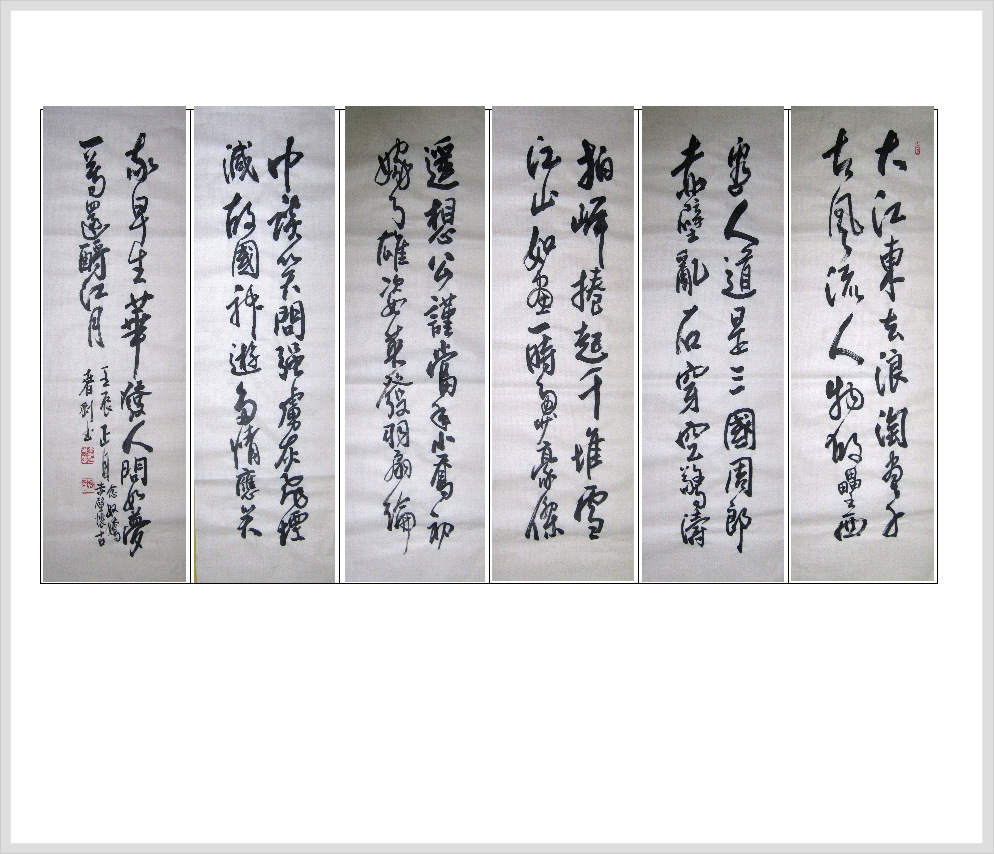 大江東去浪淘盡千
古風流人物故壘西
邊人道是三國周郎
赤壁亂石穿空驚濤
拍岸捲起千堆雪
江山如畫一時多少豪傑
遥想公謹當年小喬初
嫁了雄姿英發羽扇綸
巾談笑間强虜灰飛煙
滅故國神遊多情應笑
我早生華髮人間如夢
一尊還酹江月
壬辰正月
念奴嬌
赤壁懷古